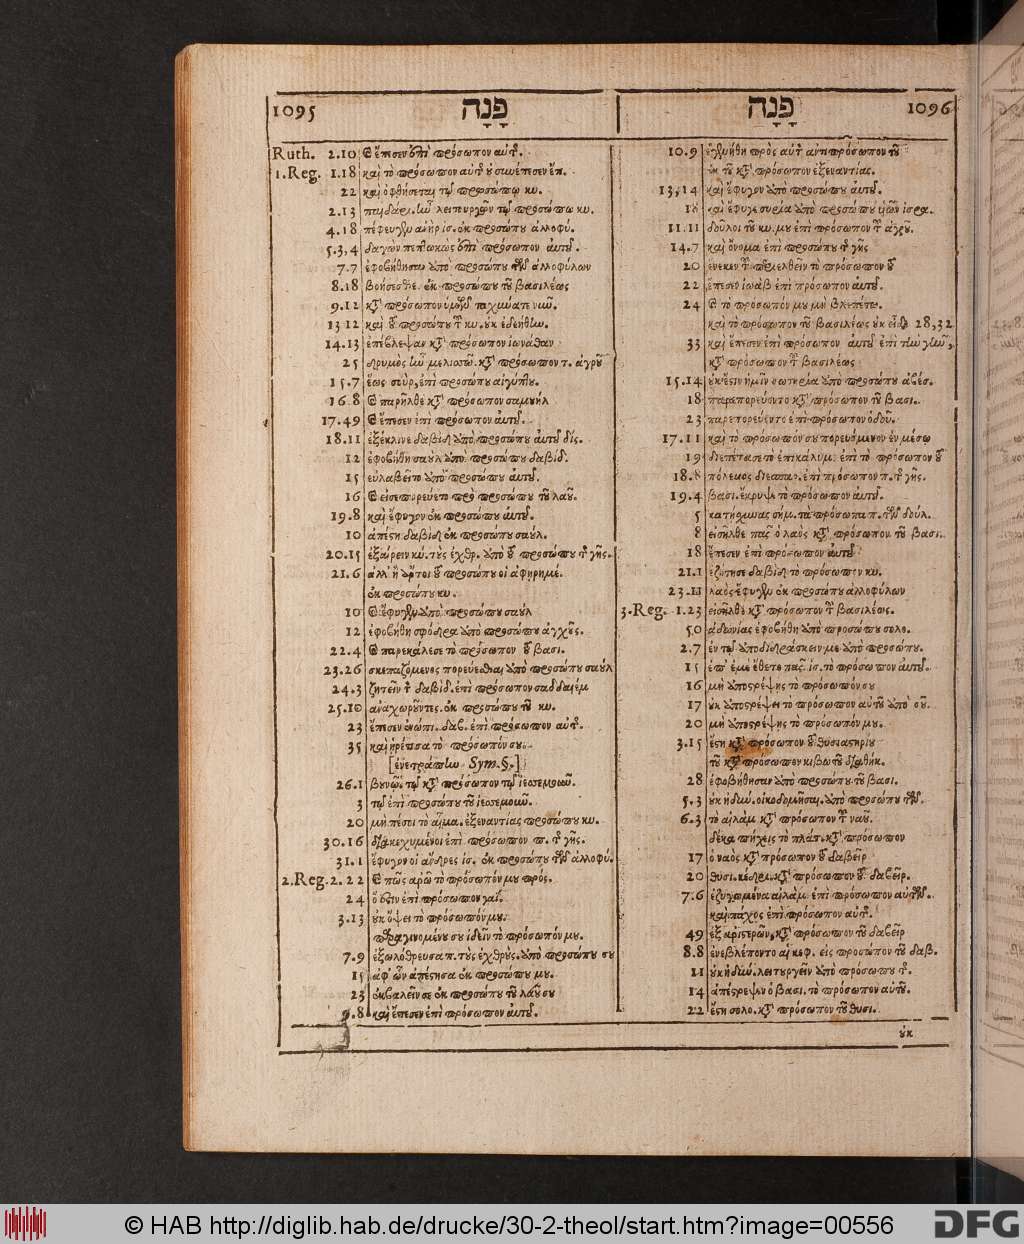 1095 פָּנָה
Ruth. 2.10 ἔπεσεν ἐπὶ πρόσωπον αὐτ.
1.Reg. 1.18 καὶ τὸ πρόσωπον αὐτ
22 καὶ ὀφθήσεται τῷ προσώπῳ κυ.
2.13 λειτουργῶν τῷ προσώπῳ κυ.
4.18 πέφευγεν ἀνὴρ ἰσ. ἐκ προσώπου ἀλλοφύ.
5.3,4 δαγὼν πεπτωκὼς ἐπὶ πρόσωπον αὐτοῦ.
7.7 ἐφοβήθησαν ὑπὸ προσώπου τῶν ἀλλοφύλων
8.18 βοήσεσθε. ἐκ προσώπου τοῦ βασιλέως
9.12 πρόσωπον ὑμῶν
13 12 καὶ τοῦ προσώπου τοῦ κυ. οὐκ ἐδεήθην.
14.13 ἐπέβλεψαν κτ πρόσωπον ἰωναθαν
25 δρυμὸς ἦν μελισσῶ. κτ πρόσωπον τ. ἀγροῦ
15.7 ἕως σοὺρ, ἐπὶ προσώπου αἰγύπτου.
16 8 παρῆλθε κτ πρόσωπον σαμουήλ
17.49 ἔπεσεν ἐπὶ πρόσωπον αὐτοῦ.
18.11 ἐξέκλινε δαβὶδ ὑπὸ προσώπου αὐτοῦ δίς.
12 ἐφοβήθη σαυλ ὑπὸ προσώπου δαβίδ.
15 εὐλαβεῖτο ὑπὸ προσώπου αὐτοῦ.
16 εἰσεπορεύετο πρὸ προσώπου τοῦ λαοῦ.
19.8 καὶ ἔφυγον ἐκ προσώπου αὐτοῦ.
10 ἀπέστη δαβὶδ ἐκ προσώπου σαύλ.
20.15 ἐξαίρειν κυ. τοὺς ἐχθρ. ὑπὸ τοῦ προσώπου τ γῆς.
21.6 ἀλλ' ἢ ἄρτοι τοῦ προσώπου οἱ ἀφῃρημέ.
ἐκ προσώπου κυ.
10 ἔφυγεν ὑπὸ προσώπου σαυλ
12 ἐφοβήθη σφόδρα ὑπὸ προσώπου ἀγχοῦς.
22.4 παρεκάλεσε τὸ πρόσωπον τοῦ βασι.
23.26 σκεπαζόμενος πορεύεσθαι ὑπὸ προσώπου σαύλ
24.3 ζητεῖν τ δαβίδ. ἐπὶ πρόσωπον σαδδαιέμ
25.10 ἀναχωροῦντες. ἐκ προσώπου τοῦ κυ.
23 ἔπεσεν ἐνώπι. δαβ. ἐπὶ πρόσωπον αὐτ.
35 καὶ ᾑρέτισα τὸ πρόσωπόν σου.
[ἐνετράπην Sym.§.]
26.1 βουνῷ. τῷ κτ πρόσωπον τοῦ ἰεσεμοῦ.
3 τῷ ἐπὶ προσώπου τοῦ ἰεσεμουῦ.
20 μὴ πέσοι τὸ αἷμα. ἐξεναντίας προσώπου κυ.
30.16 διακεχυμένοι ἐπὶ πρόσωπον π. τ γῆς.
31.1 ἔφυγον οἱ ἄνδρες ἰσ. ἐκ προσώπου τῶν ἀλλοφύ.
2.Reg.2. 22 πῶς ἀρῶ τὸ πρόσωπόν μου πρός.
24 ὅ ἐστιν ἐπὶ πρόσωπον γαΐ.
3.13 οὐκ ὄψει τὸ πρόσωπόν μου.
παραγινομένου σου ἰδεῖν τὸ πρόσωπόν μου.
7.9 ἐξωλόθρευσα π. τοὺς ἐχθρούς. ὑπὸ προσώπου σου
15 ἀφ' ὧν ἀπέστησα ἐκ προσώπου μου.
23 ἐκβαλεῖν σε ἐκ προσώπου τοῦ λαοῦ σου
9.8 καὶ ἔπεσεν ἐπὶ πρόσωπον αὐτοῦ.
פָּנָה 1096
10.9 ἐγενήθη πρὸς αὐτ ἀντιπρόσωπον τοῦ
ἐκ τοῦ κτ πρόσωπον ἐξεναντίας.
13,14 καὶ ἔφυγον ὑπὸ προσώπου αὐτοῦ.
18 καὶ ἔφυγε συρία ὑπὸ προσώπου ἰσρα.
11.11 δοῦλοι τοῦ κυ. μου ἐπὶ πρόσωπον τ ἀγροῦ.
14.7 καὶ ὄνομα ἐπὶ προσώπου τ γῆς
20 ἕνεκεν τ περιελθεῖν τὸ πρόσωπον τοῦ
22 ἔπεσεν ἰωὰβ ἐπὶ πρόσωπον αὐτοῦ.
24 τὸ πρόσωπόν μου μὴ βλεπέτω.
καὶ τὸ πρόσωπον τοῦ βασιλέως οὐκ εἶδε 28,32
33 καὶ ἔπεσεν ἐπὶ πρόσωπον αὐτοῦ ἐπὶ τὴν γῆν,
κτ πρόσωπον τ βασιλέως
15.14 οὐκ ἔστιν ἡμῖν σωτηρία ὑπὸ προσώπου ἀβέσ.
18 παραπορεύοντο κτ πρόσωπον τοῦ βασι.
23 παρεπορεύοντο ἐπὶ πρόσωπον ὁδοῦ.
17.11 καὶ τὸ πρόσωπόν σου πορευόμενον ἐν μέσῳ
19 διεπέτασε τὸ ἐπικάλυμ. ἐπὶ τὸ πρόσωπον τοῦ
18.8 πόλεμος διεσπαρ. ἐπὶ πρόσωπον π. τ γῆς.
19.4 βασι. ἔκρυψε τὸ πρόσωπον αὐτοῦ.
5 κατῄσχυνας σήμ. τὰ πρόσωπα π. τῶν δούλ.
8 εἰσῆλθε πᾶς ὁ λαὸς κτ πρόσωπον τοῦ βασι.
18 ἔπεσεν ἐπὶ πρόσωπον αὐτοῦ
21.1 ἐζήτησε δαβὶδ τὸ πρόσωπον κυ.
23.11 λαὸς ἔφυγεν ἐκ προσώπου ἀλλοφύλων
3.Reg. 1.23 εἰσῆλθε κτ πρόσωπον τ βασιλέως.
50 ἀδωνίας ἐφοβήθη ὑπὸ προσώπου σολο.
2.7 ἐν τῷ ὑποδιδράσκειν με ὑπὸ προσώπου.
15 ἐπ' ἐμὲ ἔθετο πᾶς ἰσ. τὸ πρόσωπον αὐτοῦ.
16 μὴ ὑποστρέψῃς τὸ πρόσωπόν σου
17 οὐκ ὑποστρέψει τὸ πρόσωπον αὐτοῦ ὑπὸ σοῦ.
20 μὴ ὑποστρέψῃς τὸ πρόσωπόν μου.
3.15 ἔστη κτ πρόσωπον τοῦ θυσιαστηρίου
τοῦ κτ πρόσωπον κιβωτοῦ διαθήκ.
28 ἐφοβήθησαν ὑπὸ προσώπου τοῦ βασι.
5.3 οὐκ ἠδύν. οἰκοδομῆσαι. ὑπὸ προσώπου τῶν.
6.3 τὸ αἰλὰμ κτ πρόσωπον τ ναοῦ.
δέκα πήχεις τὸ πλάτ. κτ πρόσωπον
17 ὁ ναὸς κτ πρόσωπον τοῦ δαβεῖρ
20 θυσι. κέδρι. κτ πρόσωπον τοῦ δαβεῖρ.
7.6 ἐζυγωμένα αἰλάμ. ἐπὶ πρόσωπον αὐτῶν.
καὶ πάχος ἐπὶ πρόσωπον αὐτ.
49 ἐξ ἀριστερῶν, κτ πρόσωπον τοῦ δαβεῖρ
8.8 ἐνεβλέποντο αἱ κεφ. εἰς προσώπον τοῦ δαβ.
11 οὐκ ἠδύν. λειτουργεῖν ὑπὸ προσώπου τ.
14 ἀπέστρεψεν ὁ βασι. τὸ πρόσωπον αὐτοῦ.
22 ἔστη σολο. κτ πρόσωπον τοῦ θυσι.
οὐκ
© HAB http://diglib.hab.de/drucke/30-2-theol/start.htm?image=00556
DFG